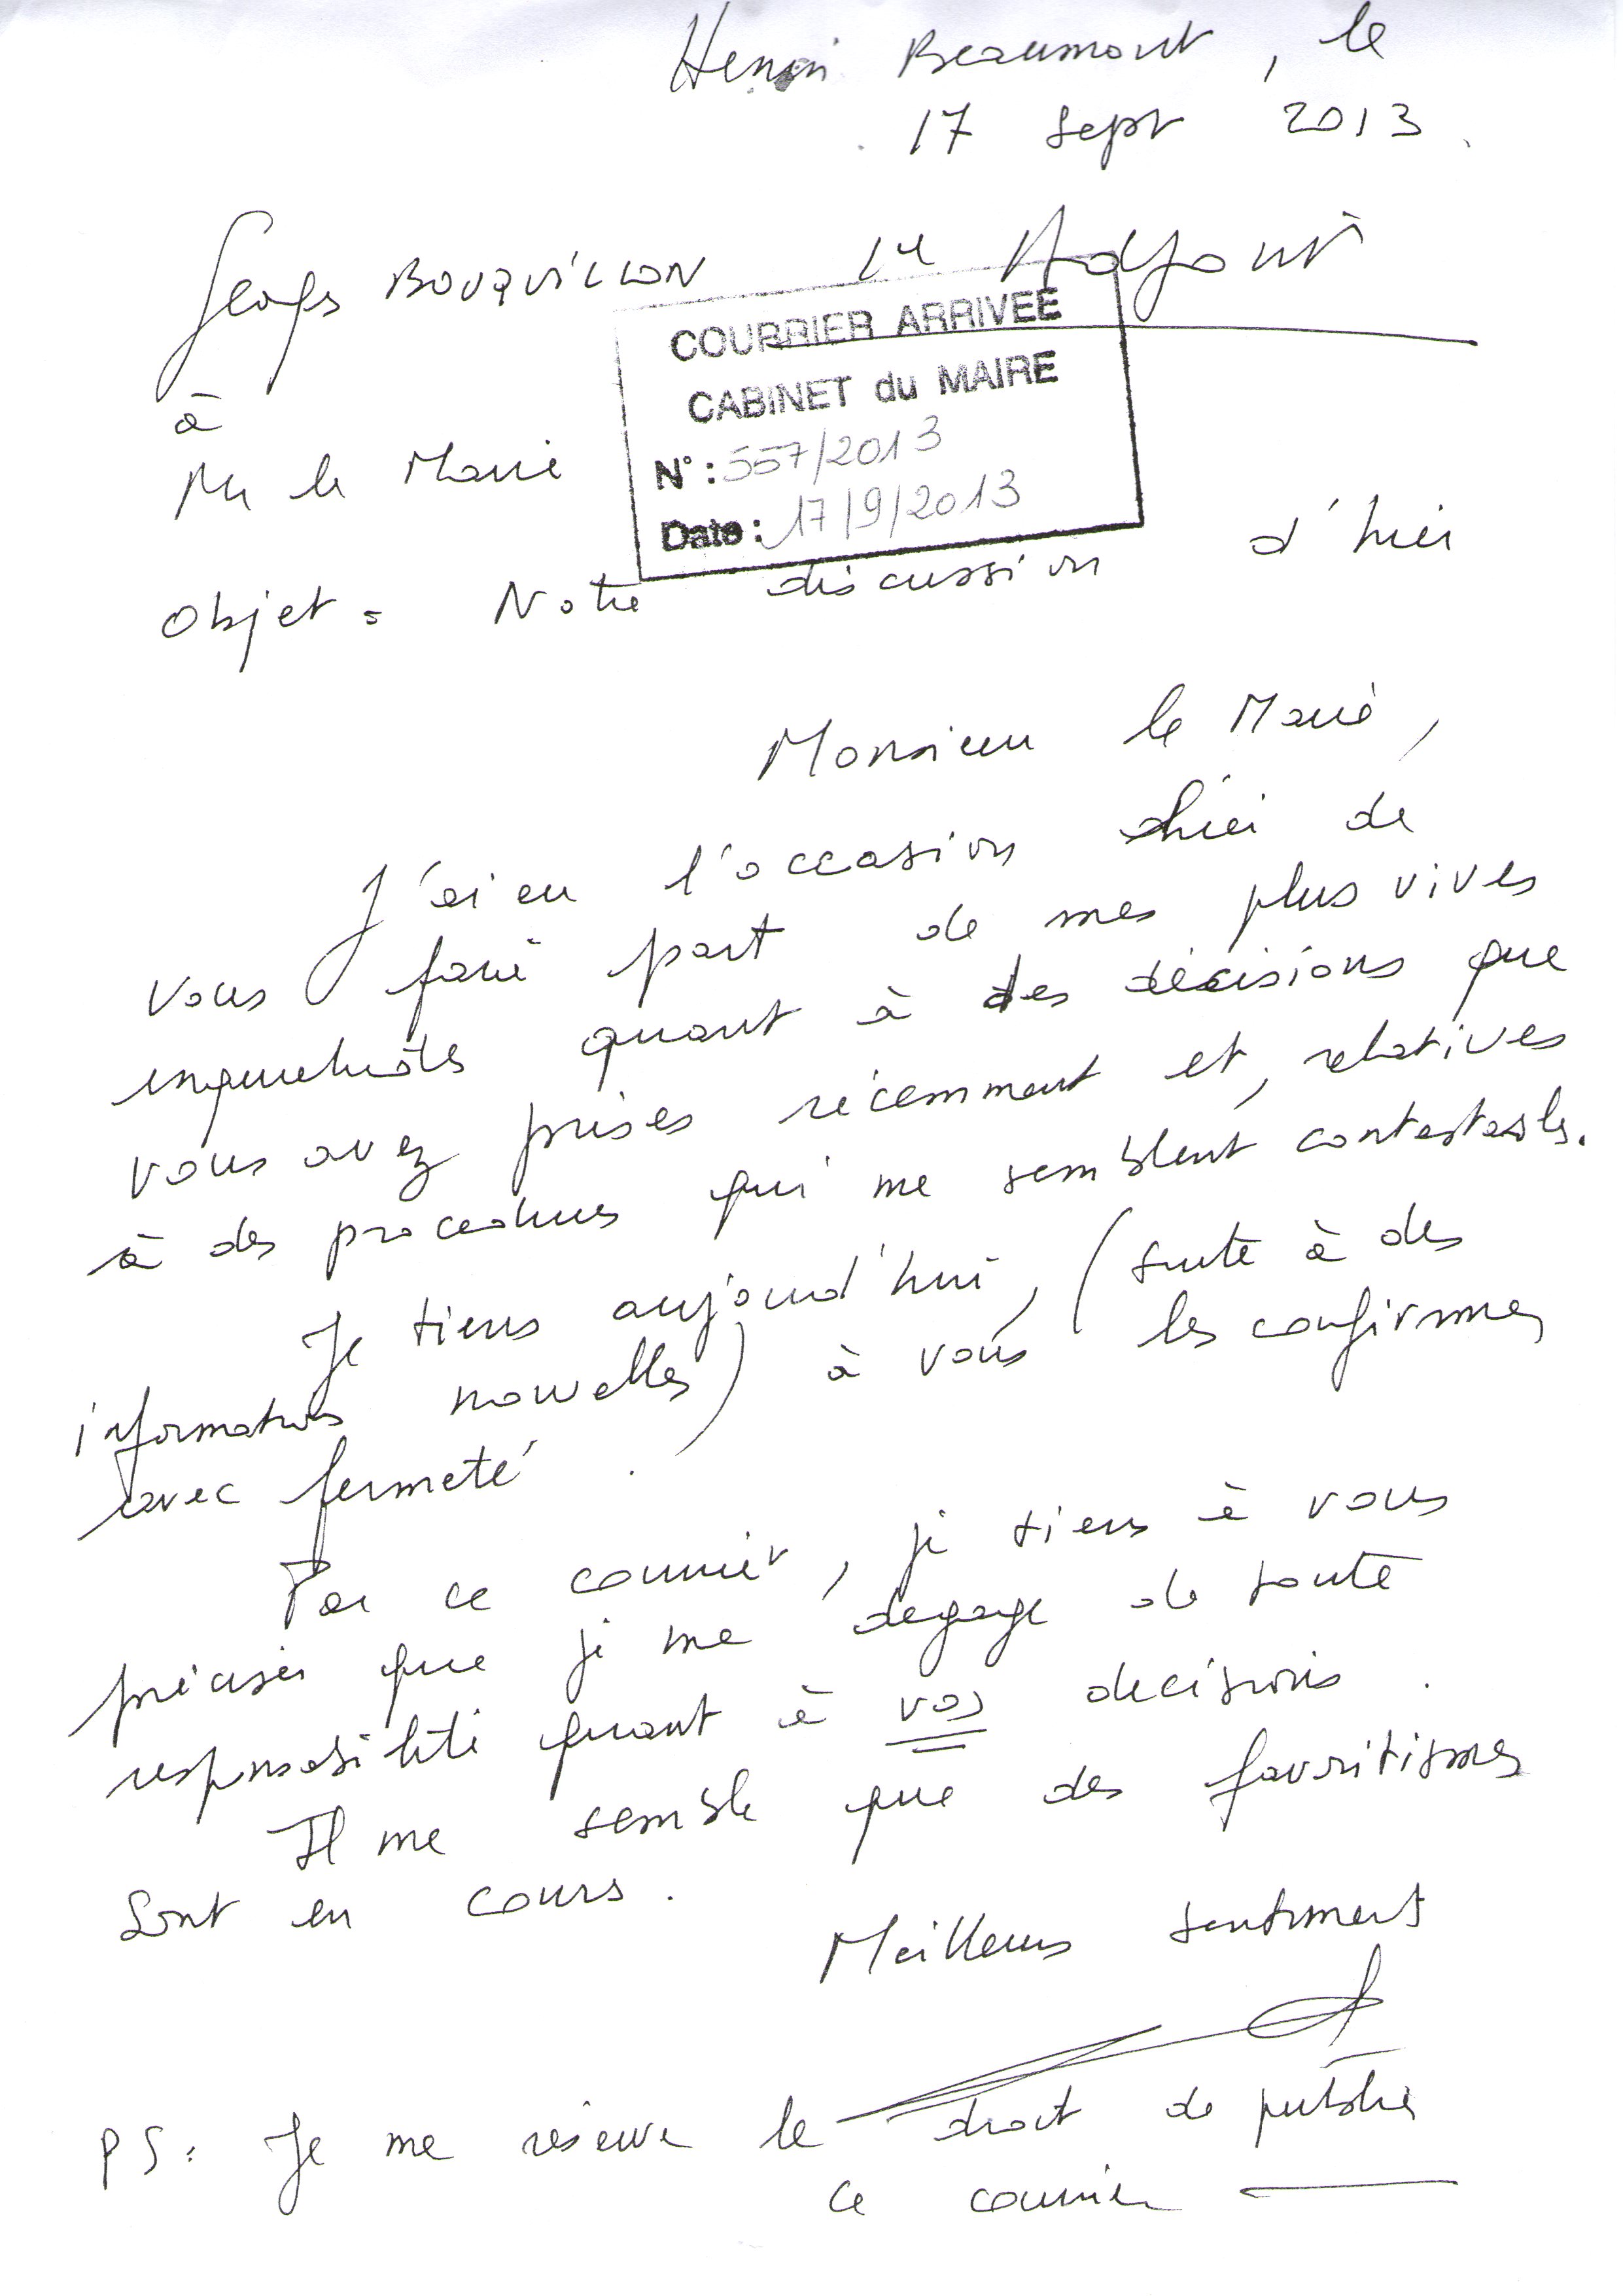 Henin Beaumont, le
17 Sept 2013.
Georges BOUQUILLON 1er Adjoint
COURRIER ARRIVEE
CABINET du MAIRE
N° : 557/2013
Date : 17/9/2013
à
Mr le Maire
Objet = Notre discussion d'hier
Monsieur le Maire,
J'ai eu l'occasion hier de
vous faire part de mes plus vives
inquietudes quant à des décisions que
vous avez prises récemment et, relatives
à des procedures qui me semblent contestables.
Je tiens aujourd'hui, (suite à des
informations nouvelles) à vous les confirmer
avec fermeté.
Par ce courrier, je tiens à vous
préciser que je me degage de toute
responsabilité quant à vos decisions.
Il me semble que des favoritismes
sont en cours.
Meilleurs sentiments
PS: Je me réserve le droit de publier
ce courrier